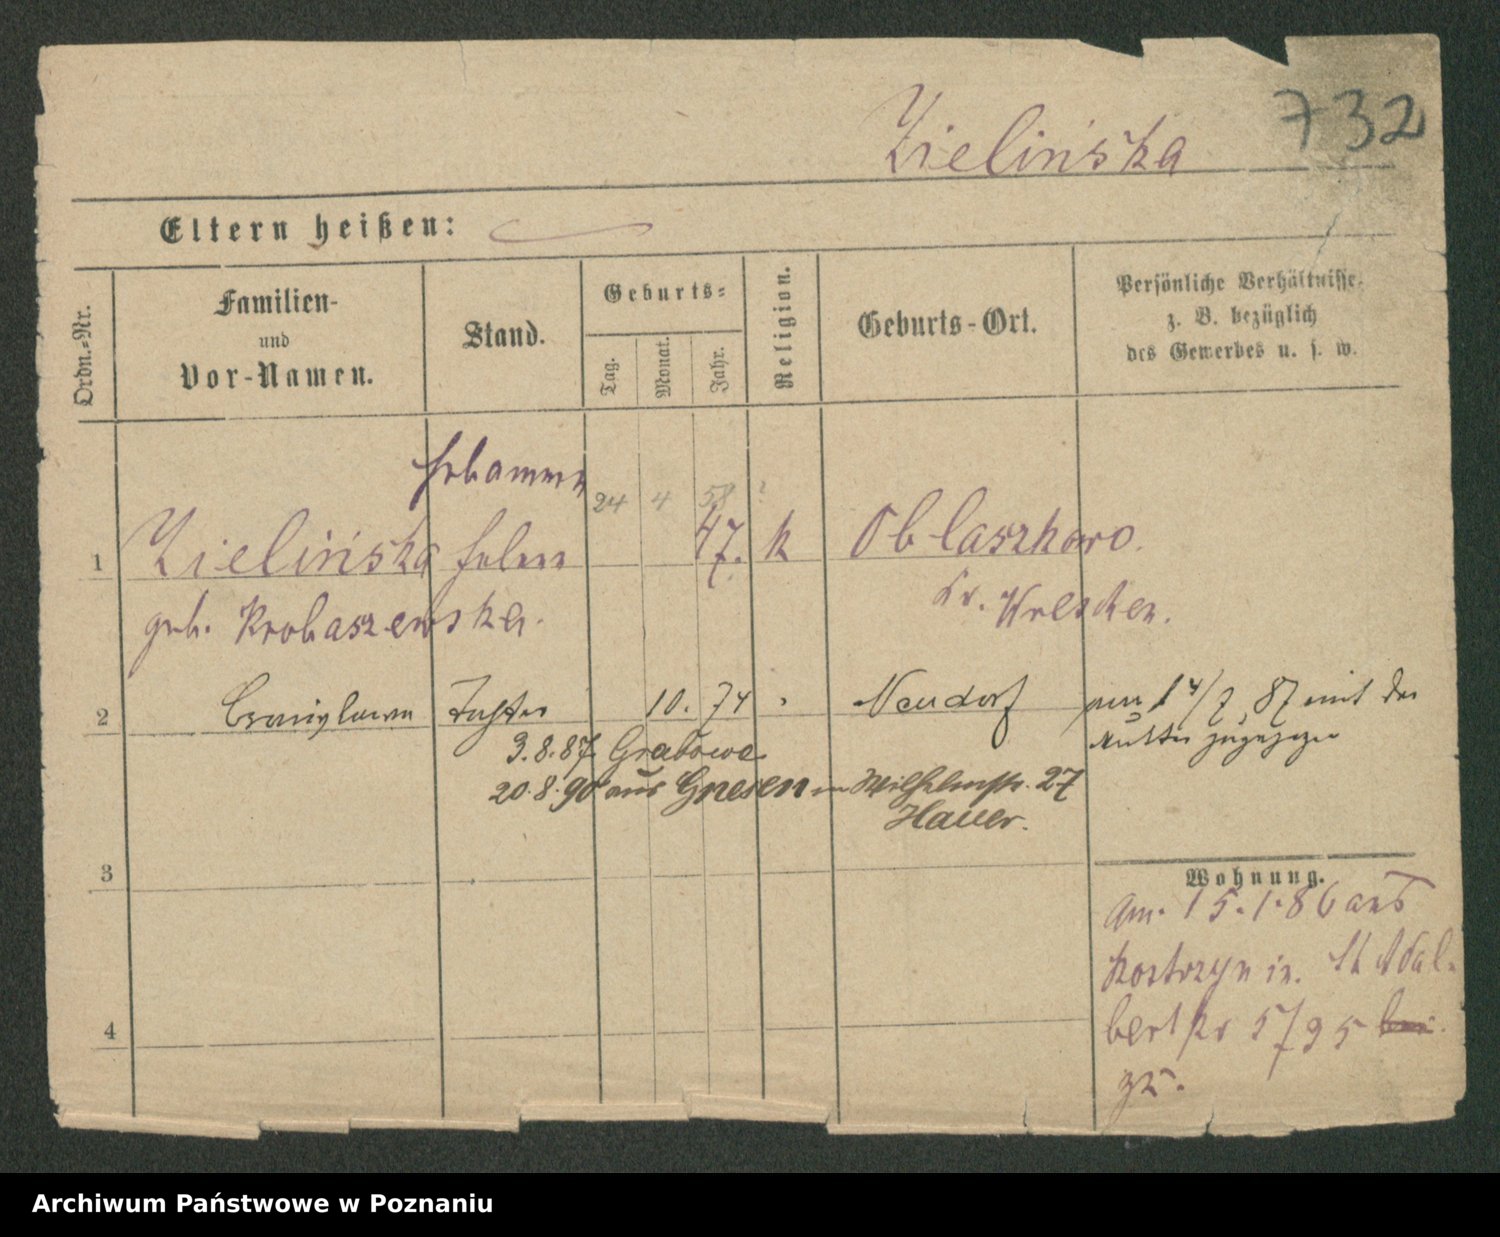 732
Zielińska
Eltern heißen:
Ordn.-Nr.
Familien-
und
Vor-Namen.
Stand.
Geburts-
Tag.
Monat.
Jahr.
Religion.
Geburts-Ort.
Persönliche Verhältnisse,
z. B. bezüglich
des Gewerbes u. s. w.
Hebamme
24 4 58 ?
1 Zielińska Helene 47. k Oblaszkowo.
geb. Krobaszewska. Kr. Wreschen.
2 Tochter 10. 74 Neudorf am 14/7 87 mit der
Mutter zugezogen
3.8.87 Grabowa
20.8.90 aus Gnesen in Wilhelmstr. 27
Hauer.
3
Wohnung.
am. 15.1.86 aus
Kostrzyn in. St Adal-
bert 5/95
4
zu.
Archiwum Państwowe w Poznaniu